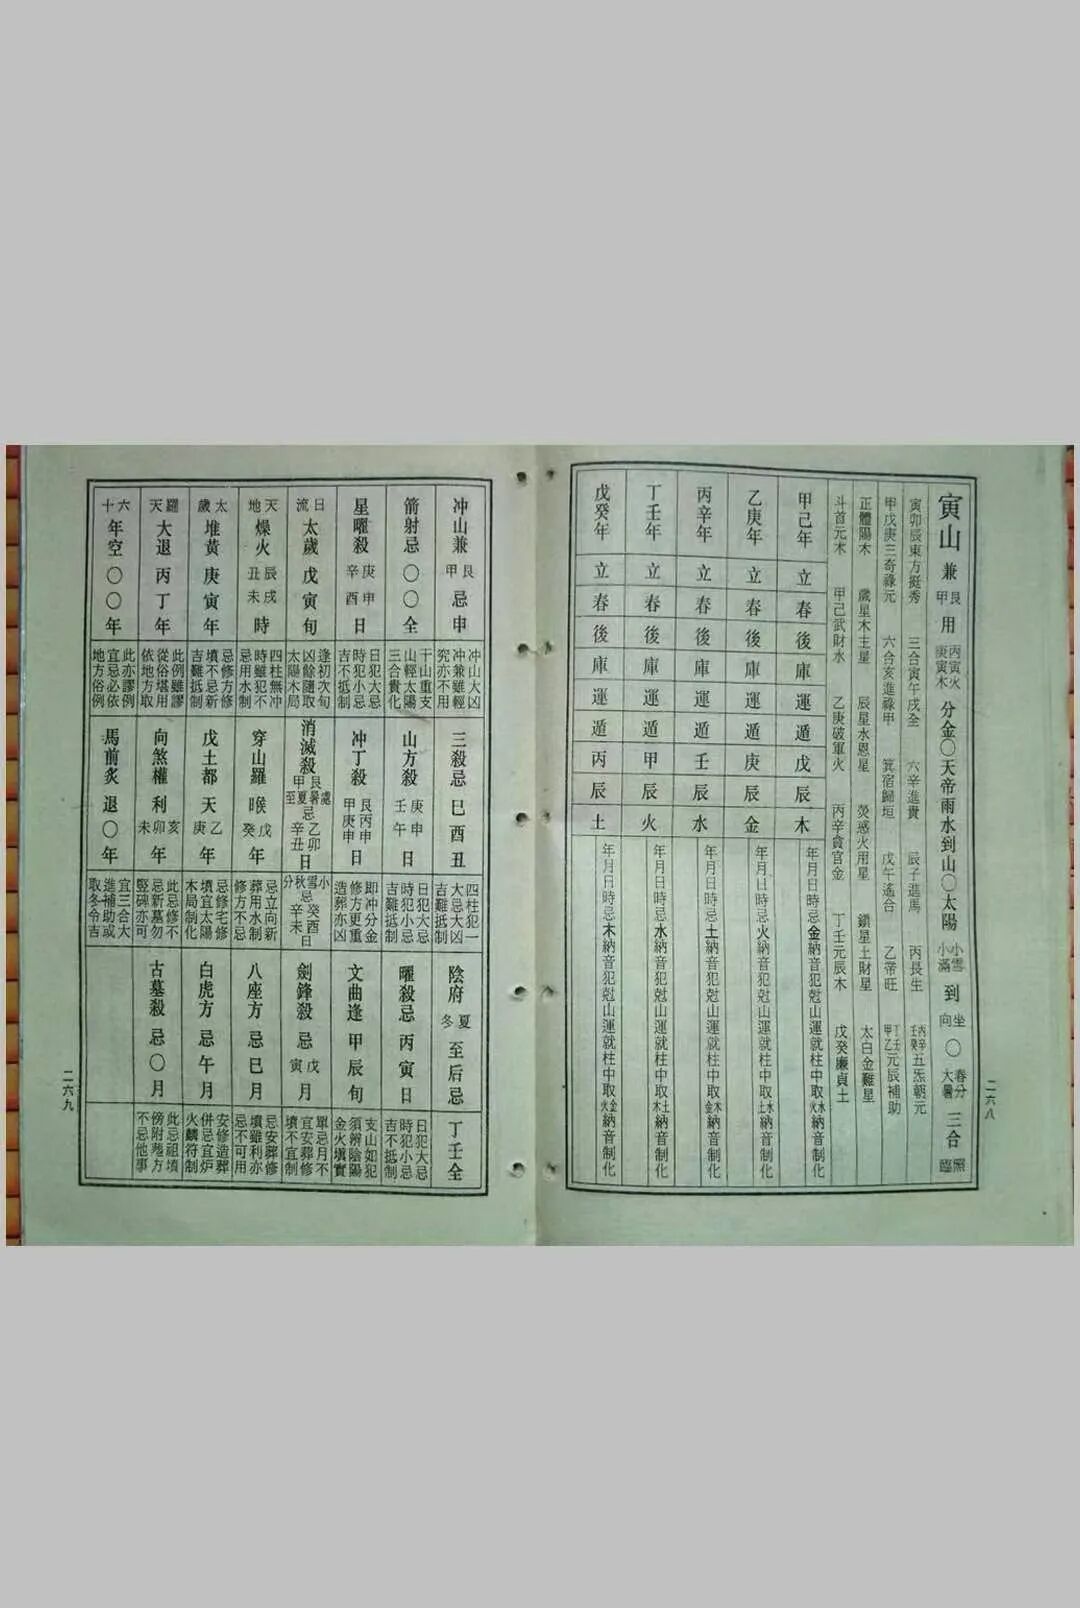 寅山兼艮甲用丙寅火庚寅木分金〇天帝雨水到山〇太陽小雪小滿到坐向〇春分大暑三合照臨
寅卯辰東方挺秀 三合寅午戌全 六辛進貴 辰子進馬 丙長生 丙辛壬癸五炁朝元
甲戊庚三奇祿元 六合亥進祿甲 箕宿歸垣 戊午遙合 乙帝旺 丁壬甲乙元辰補助
正體陽木 歲星木主星 辰星水恩星 熒惑火用星 鎮星土財星 太白金難星
斗首元木 甲己武財水 乙庚破軍火 丙辛貪官金 丁壬元辰木 戊癸廉貞土
甲己年立春後庫運遁戊辰木 年月日時忌金納音犯尅山運就柱中取水火納音制化
乙庚年立春後庫運遁庚辰金 年月日時忌火納音犯尅山運就柱中取水土納音制化
丙辛年立春後庫運遁壬辰水 年月日時忌土納音犯尅山運就柱中取木金納音制化
丁壬年立春後庫運遁甲辰火 年月日時忌水納音犯尅山運就柱中取土木納音制化
戊癸年立春後庫運遁丙辰土 年月日時忌木納音犯尅山運就柱中取金火納音制化
二六八
冲山兼艮甲忌申 冲山大凶冲兼雖輕究亦不用
箭射忌〇〇全 干山重支山輕太陽三合貴化
星曜殺庚申辛酉日 日犯大忌時犯小忌吉不抵制
日流太歲戊寅旬 逢初次旬凶餘隨取太陽木局
天地燥火辰戌丑未時 四柱無冲時雖犯不忌用水制
太歲堆黃庚寅年 忌修方修墳不忌新吉難抵制
羅天大退丙丁年 此例雖謬從俗堪用依地方取
六十年空〇〇年 此亦謬例宜忌必依地方俗例
三殺忌巳酉丑 四柱犯一大忌大凶吉難抵制
山方殺庚申壬午日 日犯大忌時犯小忌吉難抵制
冲丁殺艮丙申甲庚申日 即冲分金修方更重造葬亦凶
消滅殺艮甲處暑夏至忌乙卯辛丑日 小雪秋分忌癸酉辛未日
穿山羅睺戊癸年 忌立向新葬用水制修方不忌
戊土都天乙庚年 忌修宅修墳宜太陽木局制化
向煞權利亥卯未年 此忌修不忌新墓勿豎碑亦可
馬前炙退〇年 宜三合大進補助或取冬令吉
陰府夏冬至后忌丁壬全
曜殺忌丙寅日 日犯大忌時犯小忌吉不抵制
文曲逢甲辰旬 支山如犯須辨陰陽金火塡實
劍鋒殺忌戊寅月 單忌月不宜安葬修墳不宜制
八座方忌巳月 忌安葬修墳雖利亦忌不可用
白虎方忌午月 安修造葬併忌宜炉火麟符制
古墓殺忌〇月 此忌祖墳傍附塟方不忌他事
二六九